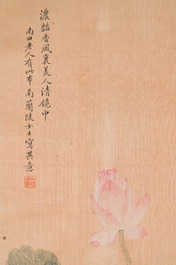 濃艷香風裏美人清鏡中
南田老人有此本南蘭陵女士寫其意